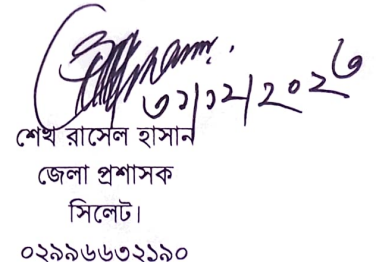 ৩১/১২/২০২৩
শেখ রাসেল হাসান
জেলা প্রশাসক
সিলেট।
০২৯৯৬৬৩২১৯০